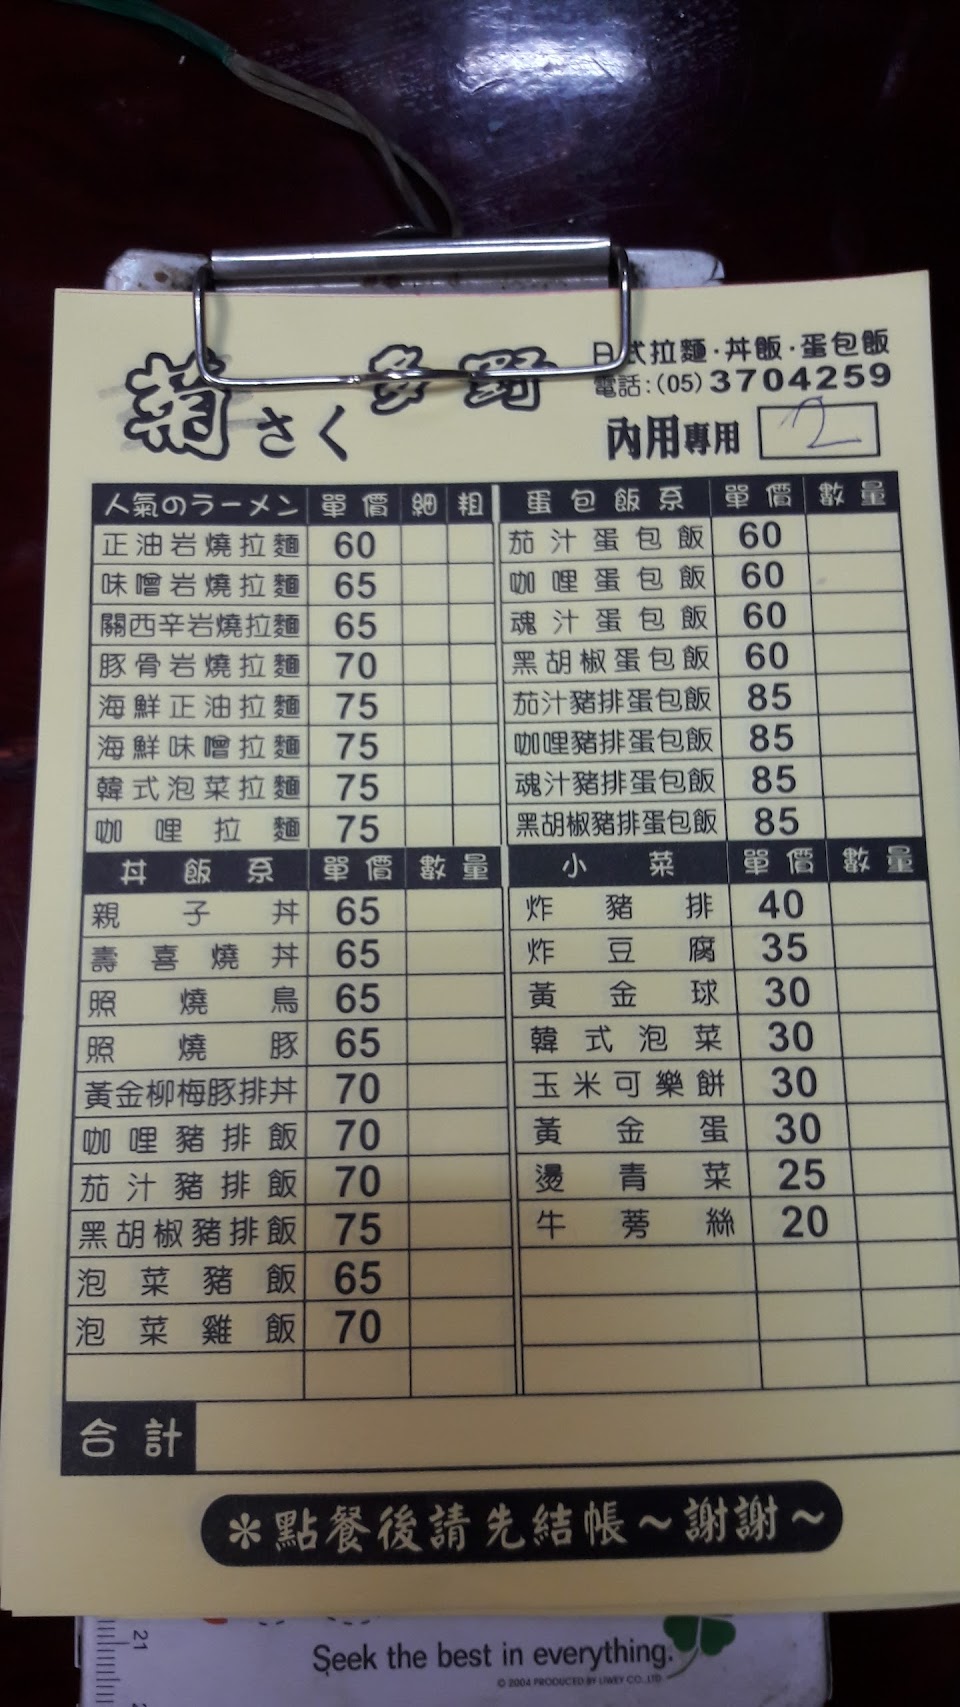 菊さく多野
日式拉麵·丼飯·蛋包飯
電話:(05)3704259
內用專用 2
人氣のラーメン 單價 細 粗
正油岩燒拉麵 60
味噌岩燒拉麵 65
關西辛岩燒拉麵 65
豚骨岩燒拉麵 70
海鮮正油拉麵 75
海鮮味噌拉麵 75
韓式泡菜拉麵 75
咖哩拉麵 75
蛋包飯系 單價 數量
茄汁蛋包飯 60
咖哩蛋包飯 60
魂汁蛋包飯 60
黑胡椒蛋包飯 60
茄汁豬排蛋包飯 85
咖哩豬排蛋包飯 85
魂汁豬排蛋包飯 85
黑胡椒豬排蛋包飯 85
丼飯系 單價 數量
親子丼 65
壽喜燒丼 65
照燒鳥 65
照燒豚 65
黃金柳梅豚排丼 70
咖哩豬排飯 70
茄汁豬排飯 70
黑胡椒豬排飯 75
泡菜豬飯 65
泡菜雞飯 70
小菜 單價 數量
炸豬排 40
炸豆腐 35
黃金球 30
韓式泡菜 30
玉米可樂餅 30
黃金蛋 30
燙青菜 25
牛蒡絲 20
合計
*點餐後請先結帳~謝謝~
21
Seek the best in everything.
© 2004 PRODUCED BY LIWEY CO., LTD